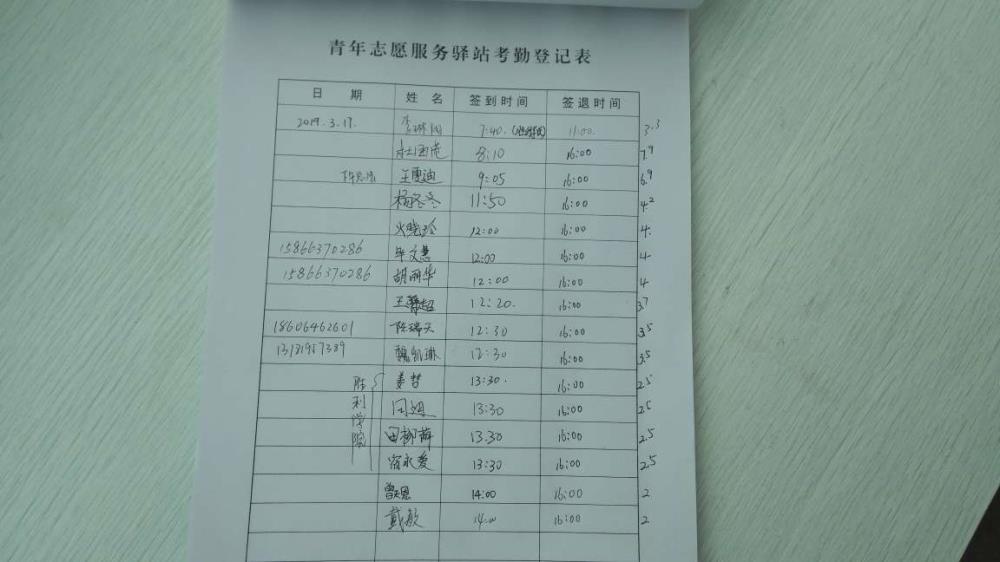 青年志愿服务驿站考勤登记表
日 期 姓 名 签到时间 签退时间
2019.3.17. 7:40. 11:00. 3.3
8:10 16:00 7.9
9:05 16:00 6.9
杨冬冬 11:50 16:00 4.2
火晓玲 12:00 16:00 4.
15866370286 毕文慧 12:00 16:00 4
15866370286 胡丽华 12:00 16:00 4
12:20. 16:00 3.7
18606462601 陈瑞天 12:30 16:00 3.5
魏凯琳 12:30 16:00 3.5
胜利学院 姜哲 13:30. 16:00 2.5
闫妞 13:30 16:00 2.5
田柳薛 13.30 16:00 2.5
宿永爱 13:30 16:00 2.5
14:00 16:00 2
戴敏 14:00 16:00 2